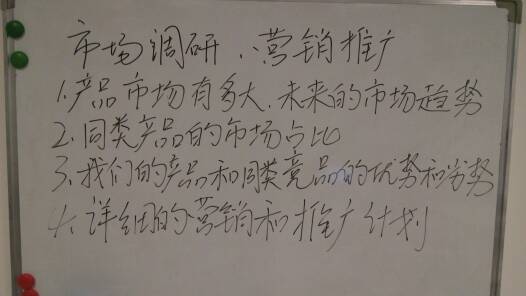 市场调研、营销推广
1.产品市场有多大.未来的市场趋势
2.同类产品的市场占比
3、我们的产品和同类竞品的优势和劣势
4、详细的营销和推广计划